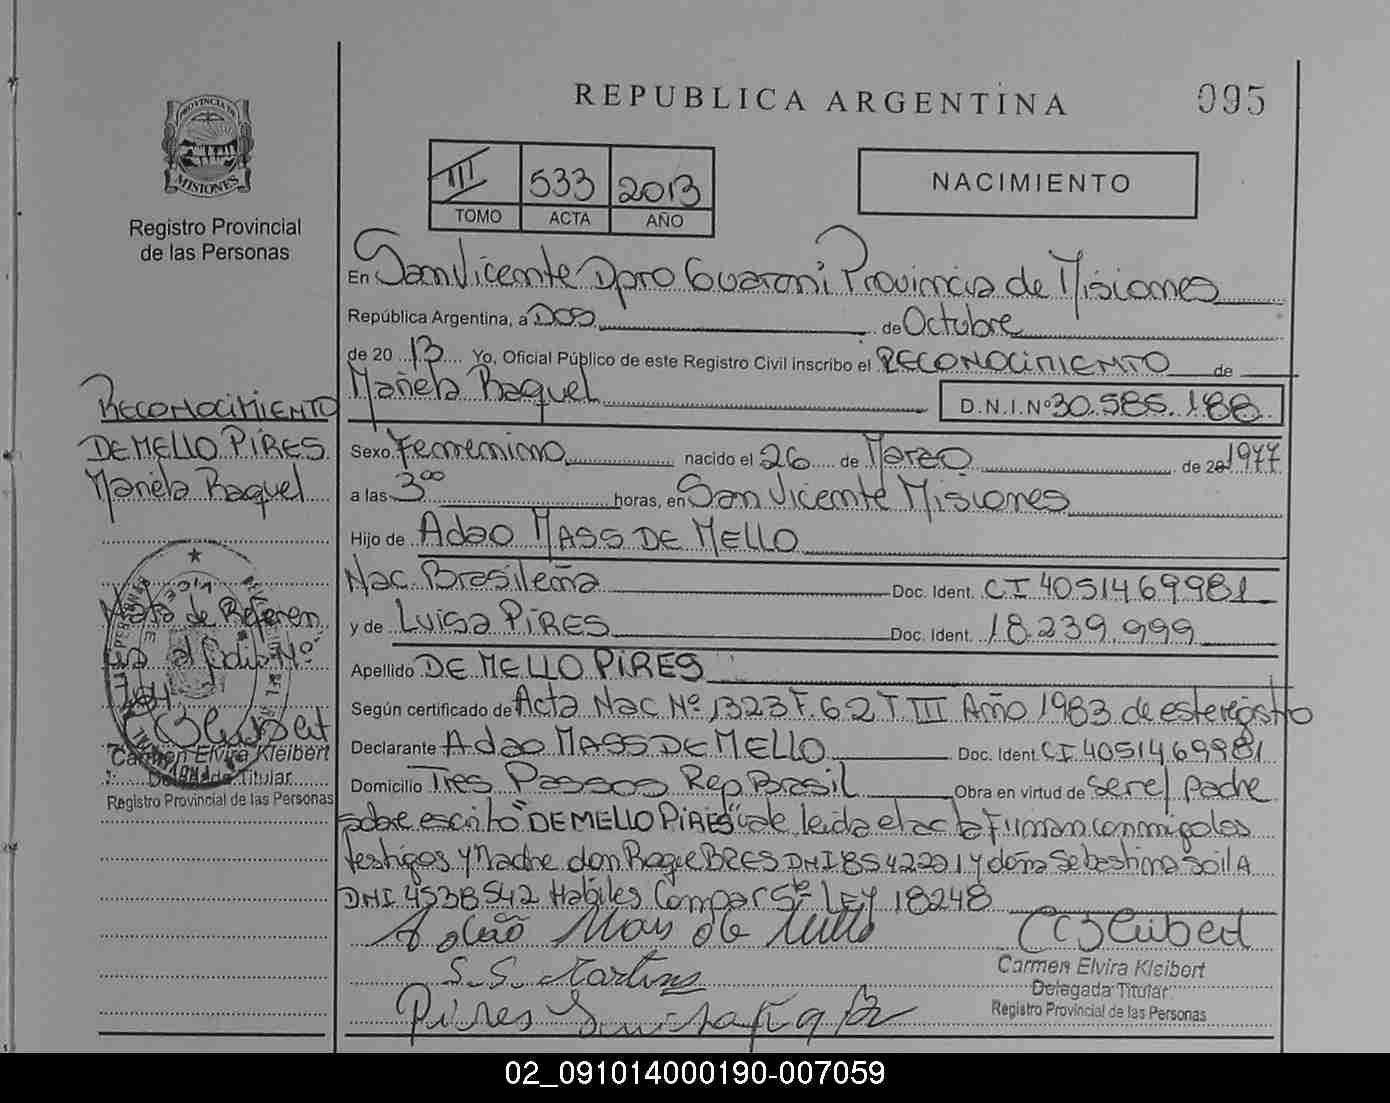 REPUBLICA ARGENTINA
095
PROVINCIA DE
MISIONES
Registro Provincial
de las Personas
III 533 2013
TOMO ACTA AÑO
NACIMIENTO
En San Vicente Dpto Guarani Provincia de Misiones
República Argentina, a Dos de Octubre
de 20 13 Yo, Oficial Público de este Registro Civil inscribo el RECONOCIMIENTO de
Mariela Raquel D.N.I.Nº 30.585.188
Sexo Femenino nacido el 26 de Marzo de 20 1977
a las 3⁰⁰ horas, en San Vicente Misiones
Hijo de Adao MASS DE MELLO
Nac. Brasileña Doc. Ident. CI 4051469981
y de Luisa PIRES Doc. Ident. 18.239.999
Apellido DE MELLO PIRES
Según certificado de Acta Nac Nº 1323 F. 62 T III Año 1983 de este registro
Declarante Adao MASS DE MELLO Doc. Ident. CI 4051469981
Domicilio Tres Passos Rep Brasil Obra en virtud de ser el padre
sobre escrito "DE MELLO PIRES" vale leida el acta Firman conmigo los
testigos y Madre don Roque BRES DNI 8542221 y doña Sebestina
DNI 4538542 Habiles Compar LEY 18248
S. S. Martins
Pires Luisa
Carmen Elvira Kleibert
Delegada Titular
Registro Provincial de las Personas
RECONOCIMIENTO
DE MELLO PIRES
Mariela Raquel
Nota de Referen
Carmen Elvira Kleibert
Delegada Titular
Registro Provincial de las Personas
02_091014000190-007059